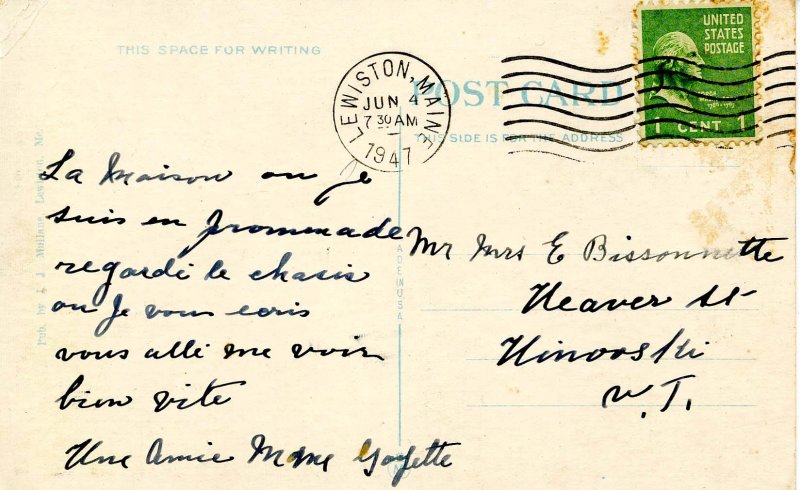 THIS SPACE FOR WRITING
POST CARD
THIS SIDE IS FOR THE ADDRESS
LEWISTON, MAINE
JUN 4
7 30 AM
1947
UNITED
STATES
POSTAGE
1 CENT 1
Pub. by J. J. Mullane, Lewiston, Me.
MADE IN U S A
La Maison ou je
suis en promenade
regardé le chasis
ou Je vous ecris
vous allé me voir
bien vite
Une Amie Mme Goyette
Mr Mrs E Bissonnette
Weaver St
Winooski
V.T.